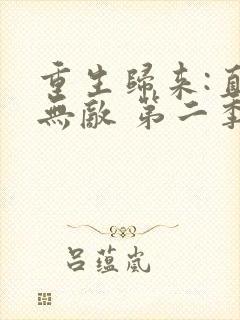 重生歸來:直
無敵 第二季
呂蘊嵐